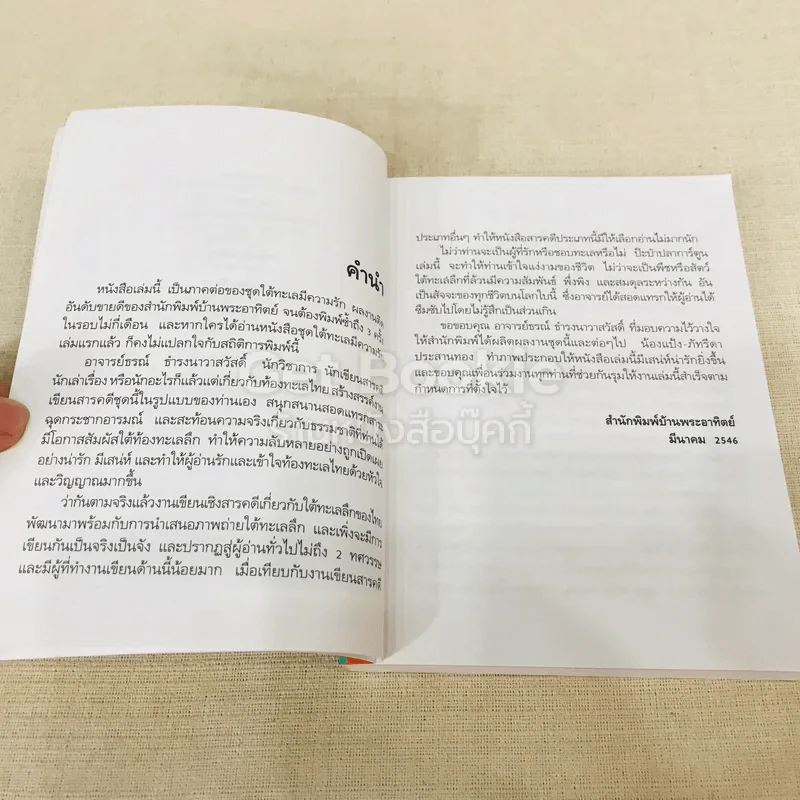 คำนำ
หนังสือเล่มนี้ เป็นภาคต่อของชุดใต้ทะเลมีความรัก ผลงานติด
อันดับขายดีของสำนักพิมพ์บ้านพระอาทิตย์ จนต้องพิมพ์ซ้ำถึง 3 ครั้ง
ในรอบไม่กี่เดือน และหากใครได้อ่านหนังสือชุดใต้ทะเลมีความรัก
เล่มแรกแล้ว ก็คงไม่แปลกใจกับสถิติการพิมพ์นี้
อาจารย์ธรณ์ ธำรงนาวาสวัสดิ์ นักวิชาการ นักเขียนสารคดี
นักเล่าเรื่อง หรือนักอะไรก็แล้วแต่เกี่ยวกับท้องทะเลไทย สร้างสรรค์งาน
เขียนสารคดีชุดนี้ในรูปแบบของท่านเอง สนุกสนานสอดแทรกสาระ
ฉุดกระชากอารมณ์ และสะท้อนความจริงเกี่ยวกับธรรมชาติที่ท่านได้
มีโอกาสสัมผัสใต้ท้องทะเลลึก ทำให้ความลับหลายอย่างถูกเปิดเผย
อย่างน่ารัก มีเสน่ห์ และทำให้ผู้อ่านรักและเข้าใจท้องทะเลไทยด้วยหัวใจ
และวิญญาณมากขึ้น
ว่ากันตามจริงแล้วงานเขียนเชิงสารคดีเกี่ยวกับใต้ทะเลลึกของไทย
พัฒนามาพร้อมกับการนำเสนอภาพถ่ายใต้ทะเลลึก และเพิ่งจะมีการ
เขียนกันเป็นจริงเป็นจัง และปรากฏสู่ผู้อ่านทั่วไปไม่ถึง 2 ทศวรรษ
และมีผู้ที่ทำงานเขียนด้านนี้น้อยมาก เมื่อเทียบกับงานเขียนสารคดี
ประเภทอื่นๆ ทำให้หนังสือสารคดีประเภทนี้มีให้เลือกอ่านไม่มากนัก
ไม่ว่าท่านจะเป็นผู้ที่รักหรือชอบทะเลหรือไม่ ป๊ะป๋าปลาการ์ตูน
เล่มนี้ จะทำให้ท่านเข้าใจแง่งามของชีวิต ไม่ว่าจะเป็นพืชหรือสัตว์
ใต้ทะเลลึกที่ล้วนมีความสัมพันธ์ พึ่งพิง และสมดุลระหว่างกัน อัน
เป็นสัจจะของทุกชีวิตบนโลกใบนี้ ซึ่งอาจารย์ได้สอดแทรกให้ผู้อ่านได้
ซึมซับไปโดยไม่รู้สึกเป็นส่วนเกิน
ขอขอบคุณ อาจารย์ธรณ์ ธำรงนาวาสวัสดิ์ ที่มอบความไว้วางใจ
ให้สำนักพิมพ์ได้ผลิตผลงานชุดนี้และต่อๆไป น้องแป้ง-ภัทรีดา
ประสานทอง ทำภาพประกอบให้หนังสือเล่มนี้มีเสน่ห์น่ารักยิ่งขึ้น
และขอบคุณเพื่อนร่วมงานทุกท่านที่ช่วยกันรุมให้งานเล่มนี้สำเร็จตาม
กำหนดการที่ตั้งใจไว้
สำนักพิมพ์บ้านพระอาทิตย์
มีนาคม 2546